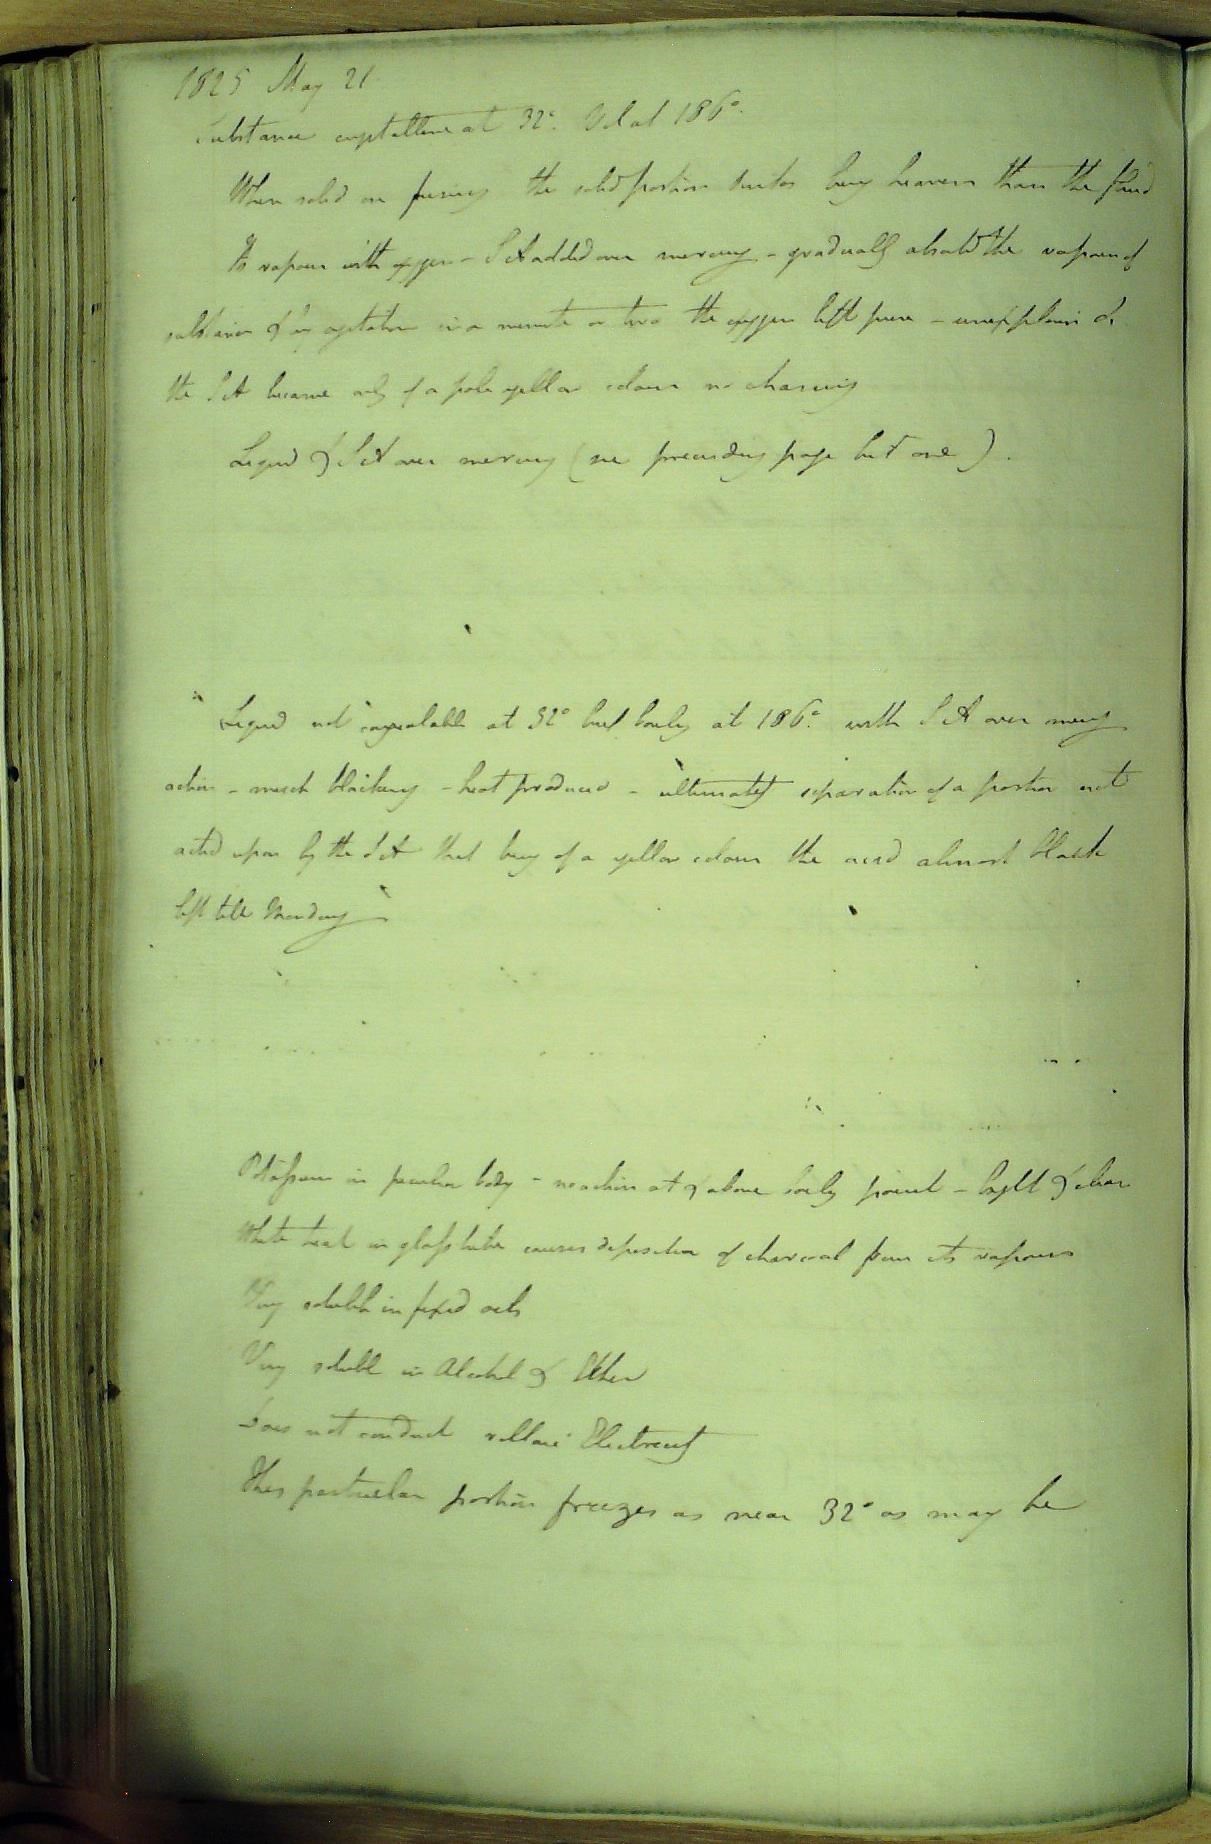 1825 May 21
Substance crystalline at 32°. Vol at 186°.
When solid on fusing the solid portion sinks being heavier than the fluid
Its vapour with oxygen - S A added over mercury - gradually absorbd the vapour of
substance & by agitation in a minute or two the oxygen left pure - unexplosive &c
the S A became only of a pale yellow colour no charring
Liquid & S A over mercury (see preceeding page but one).
Liquid not congealable at 32° but boily at 186°. with S A over mercy
action - much blackeng - heat produced - ultimately separation of a portion not
acted upon by the S A that being of a yellow colour the acid almost black
left till Monday
Potassium in peculiar body - no action at & above boily point - bright & clean
White heat in glass tube causes deposition of charcoal from its vapours
Very soluble in fixed oils
Very soluble in Alcohol & Ether
Does not conduct voltaic Electricity
This particular portion freezes as near 32° as may be